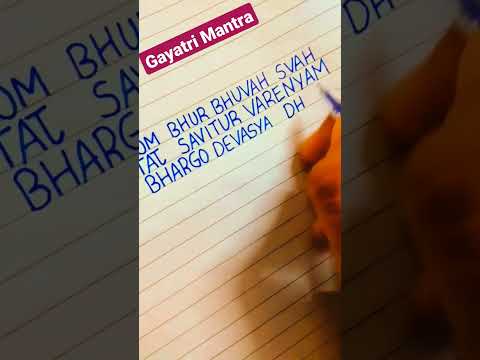 Gayatri Mantra
OM BHUR BHUVAH SVAH
TAT SAVITUR VARENYAM
BHARGO DEVASYA DH